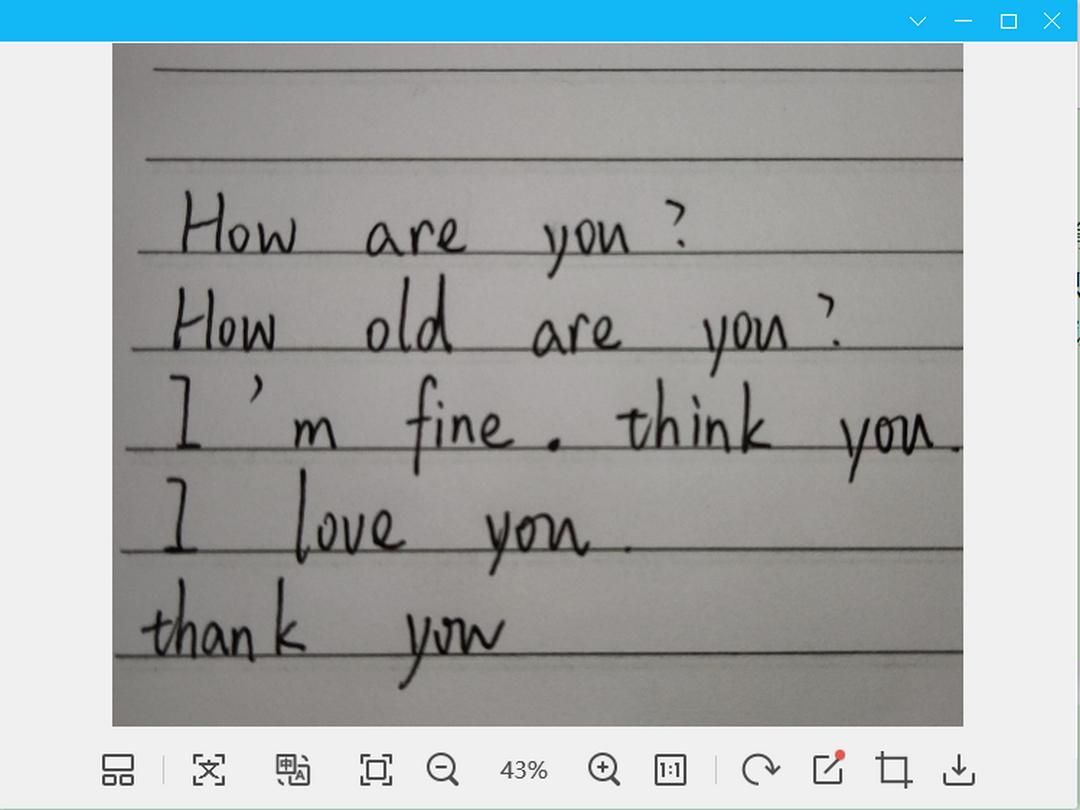 How are you?
How old are you?
I'm fine. think you.
I love you.
thank you
43%
1:1